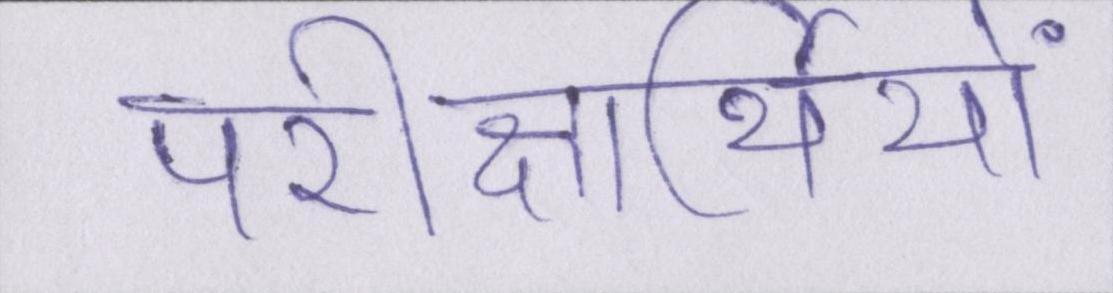 परीक्षार्थियों